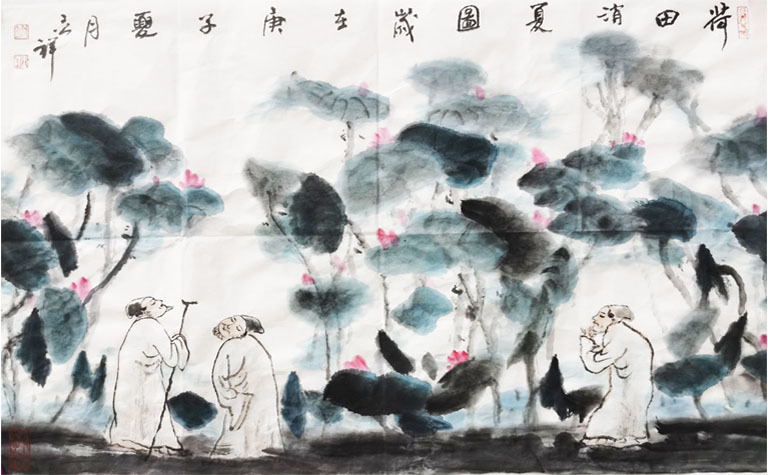 荷田消夏圖歲在庚子夏月
立祥